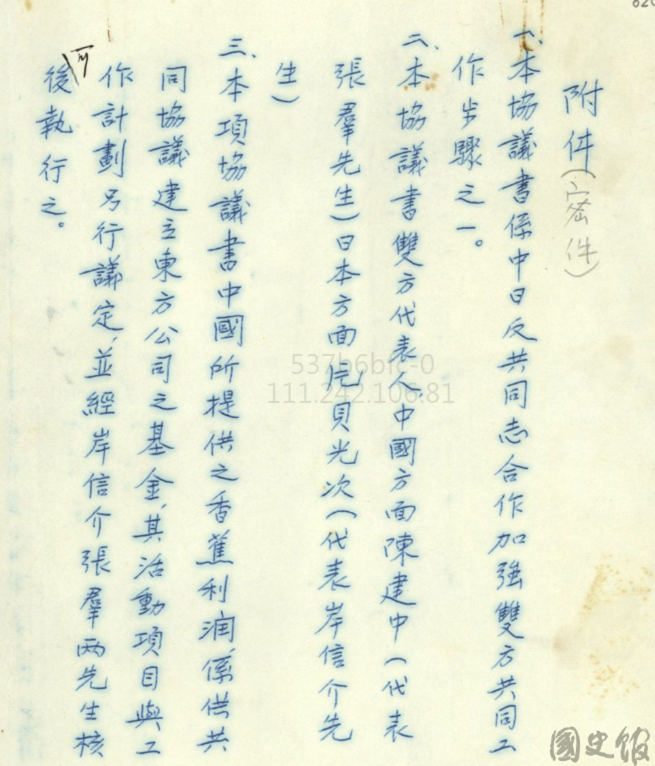 附件(密件)
一、本協議書係中日反共同志合作加強雙方共同工
作步驟之一。
二、本協議書雙方代表人中國方面陳建中(代表
張羣先生)日本方面児貝光次(代表岸信介先
生)
三、本項協議書中國所提供之香蕉利润係供共
同協議建立東方公司之基金,其活動項目與工
作計劃另行議定,並經岸信介張羣两先生核
可後執行之。
620
537b6bfc-0
111.242.106.81
國史館